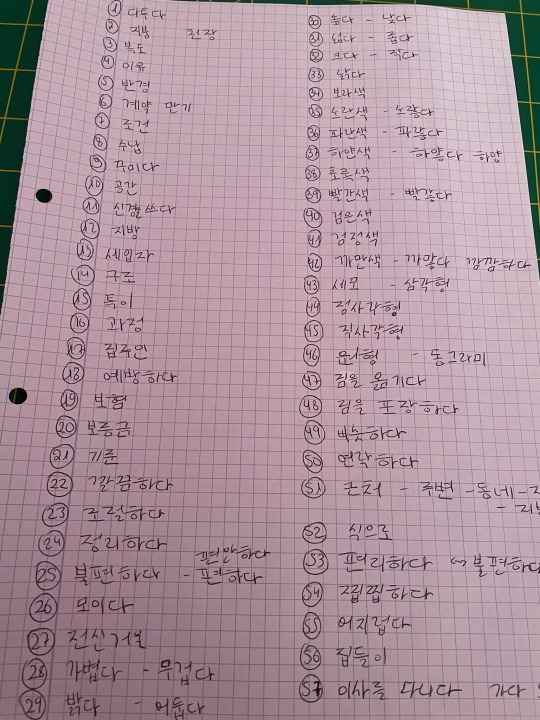 ① 다루다
② 지방 천장
③ 복도
④ 이유
⑤ 반경
⑥ 계약 만기
⑦ 조건
⑧ 수납
⑨ 꾸미다
⑩ 공간
⑪ 신경쓰다
⑫ 지방
⑬ 세입자
⑭ 구조
⑮ 특이
⑯ 과정
⑰ 집주인
⑱ 예방하다
⑲ 보험
⑳ 보증금
㉑ 기준
㉒ 깔끔하다
㉓ 조절하다
㉔ 정리하다
편안하다
㉕ 불편하다 - 편하다
㉖ 모이다
㉗ 전신거울
㉘ 가볍다 - 무겁다
㉙ 밝다 - 어둡다
㉚ 높다 - 낮다
㉛ 넓다 - 좁다
㉜ 크다 - 작다
㉝
㉞ 보라색
㉟ 노란색 - 노랗다
㊱ 파란색 - 파랗다
㊲ 하얀색 - 하얗다 하양
㊳ 초록색
㊴ 빨간색 - 빨갛다
㊵ 검은색
㊶ 검정색
㊷ 까만색 - 까맣다 깜깜하다
㊸ 세모 - 삼각형
㊹ 정사각형
㊺ 직사각형
㊻ 원형 - 동그라미
㊼ 짐을 옮기다
㊽ 짐을 포장하다
㊾ 비슷하다
㊿ 연락하다
51 근처 - 주변 - 동네 -
52 식으로
53 편리하다 ↔ 불편하다
54 찝찝하다
55 어지럽다
56 집들이
57 이사를 다니다 가다